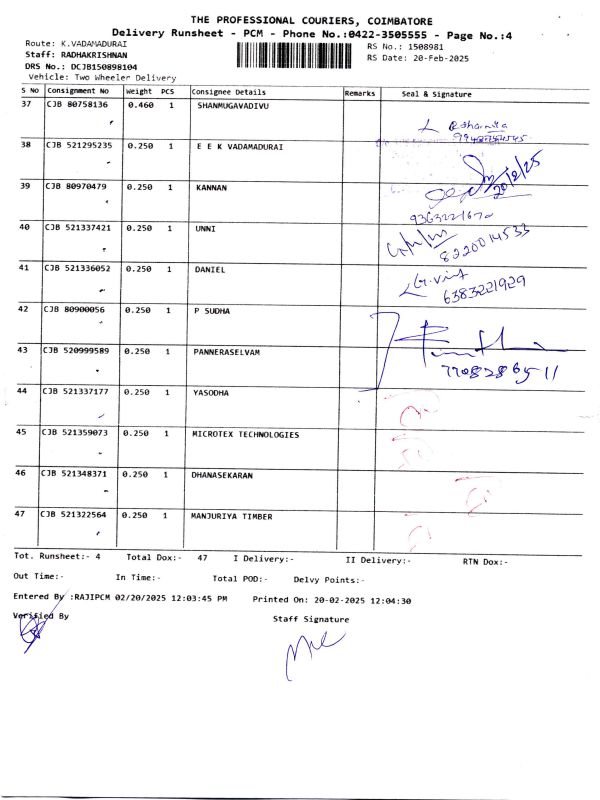 THE PROFESSIONAL COURIERS, COIMBATORE
Delivery Runsheet - PCM - Phone No.:0422-3505555 - Page No.:4
Route: K.VADAMADURAI RS No.: 1508981
Staff: RADHAKRISHNAN RS Date: 20-Feb-2025
DRS No.: DCJB150898104
Vehicle: Two Wheeler Delivery
S No Consignment No Weight PCS Consignee Details Remarks Seal & Signature
37 CJB 80758136 0.460 1 SHANMUGAVADIVU
38 CJB 521295235 0.250 1 E E K VADAMADURAI
20/2/25
39 CJB 80970479 0.250 1 KANNAN
40 CJB 521337421 0.250 1 UNNI
8220014533
41 CJB 521336052 0.250 1 DANIEL
6383221929
42 CJB 80900056 0.250 1 P SUDHA
43 CJB 520999589 0.250 1 PANNERASELVAM
7708286511
44 CJB 521337177 0.250 1 YASODHA
45 CJB 521359073 0.250 1 MICROTEX TECHNOLOGIES
46 CJB 521348371 0.250 1 DHANASEKARAN
47 CJB 521322564 0.250 1 MANJURIYA TIMBER
Tot. Runsheet:- 4 Total Dox:- 47 I Delivery:- II Delivery:- RTN Dox:-
Out Time:- In Time:- Total POD:- Delvy Points:-
Entered By :RAJIPCM 02/20/2025 12:03:45 PM Printed On: 20-02-2025 12:04:30
Verified By Staff Signature